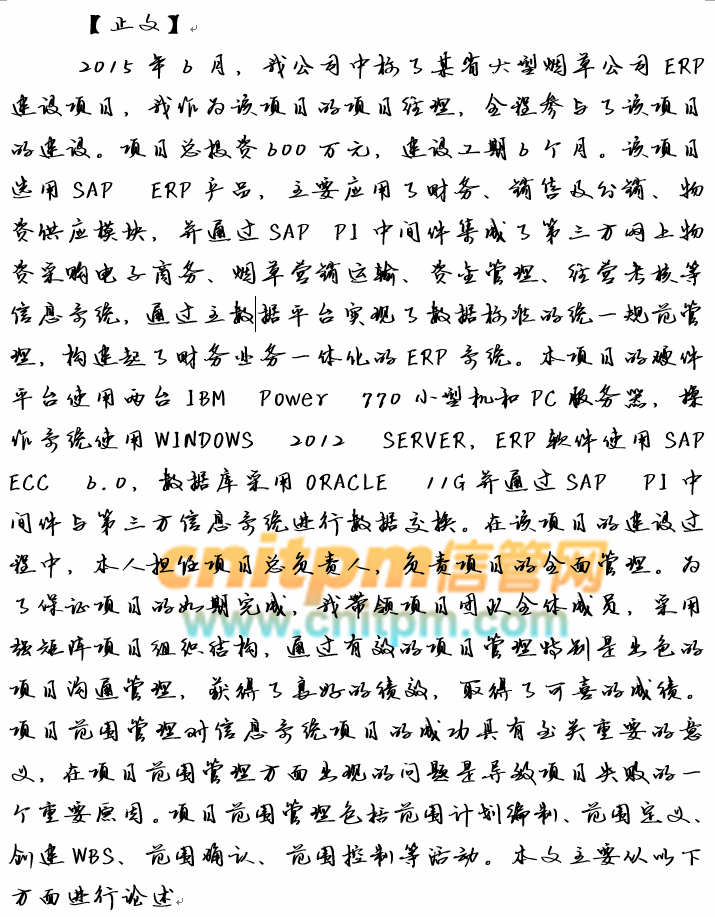 【正文】
2015 年 6 月，我公司中标了某省大型烟草公司 ERP
建设项目，我作为该项目的项目经理，全程参与了该项目
的建设。项目总投资 600 万元，建设工期 6 个月。该项目
选用 SAP ERP 产品，主要应用了财务、销售及分销、物
资供应模块，并通过 SAP PI 中间件集成了第三方网上物
资采购电子商务、烟草营销运输、资金管理、经营考核等
信息系统，通过主数据平台实现了数据标准的统一规范管
理，构建起了财务业务一体化的 ERP 系统。本项目的硬件
平台使用两台 IBM Power 770 小型机和 PC 服务器，操
作系统使用 WINDOWS 2012 SERVER，ERP 软件使用 SAP
ECC 6.0，数据库采用 ORACLE 11G 并通过 SAP PI 中
间件与第三方信息系统进行数据交换。在该项目的建设过
程中，本人担任项目总负责人，负责项目的全面管理。为
了保证项目的如期完成，我带领项目团队全体成员，采用
强矩阵项目组织结构，通过有效的项目管理特别是出色的
项目沟通管理，获得了良好的绩效，取得了可喜的成绩。
项目范围管理对信息系统项目的成功具有至关重要的意
义，在项目范围管理方面出现的问题是导致项目失败的一
个重要原因。项目范围管理包括范围计划编制、范围定义、
创建 WBS、范围确认、范围控制等活动。本文主要从以下
方面进行论述
cnitpm信管网
www.cnitpm.com